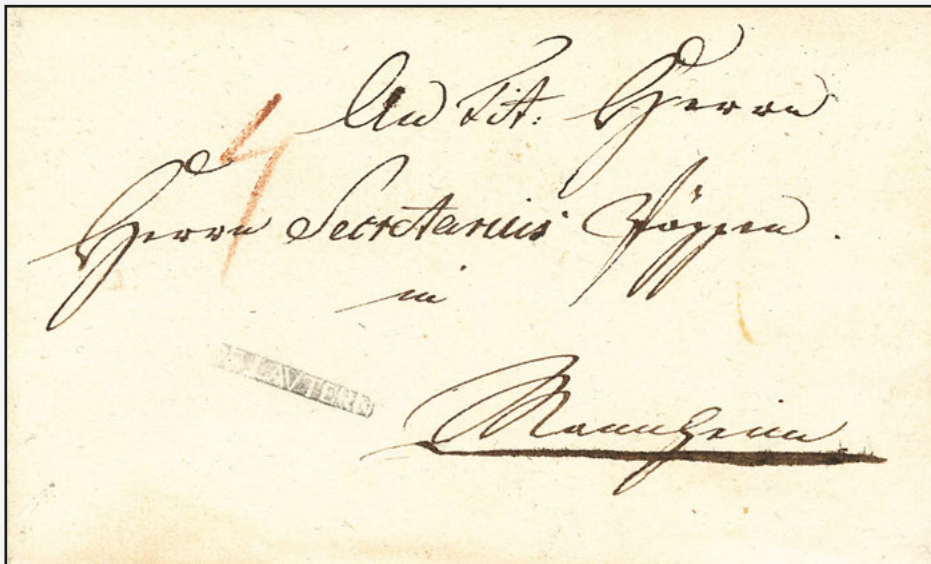 An Tit: Herrn
Herrn Secretarius
in
LAVTERN
Mannheim